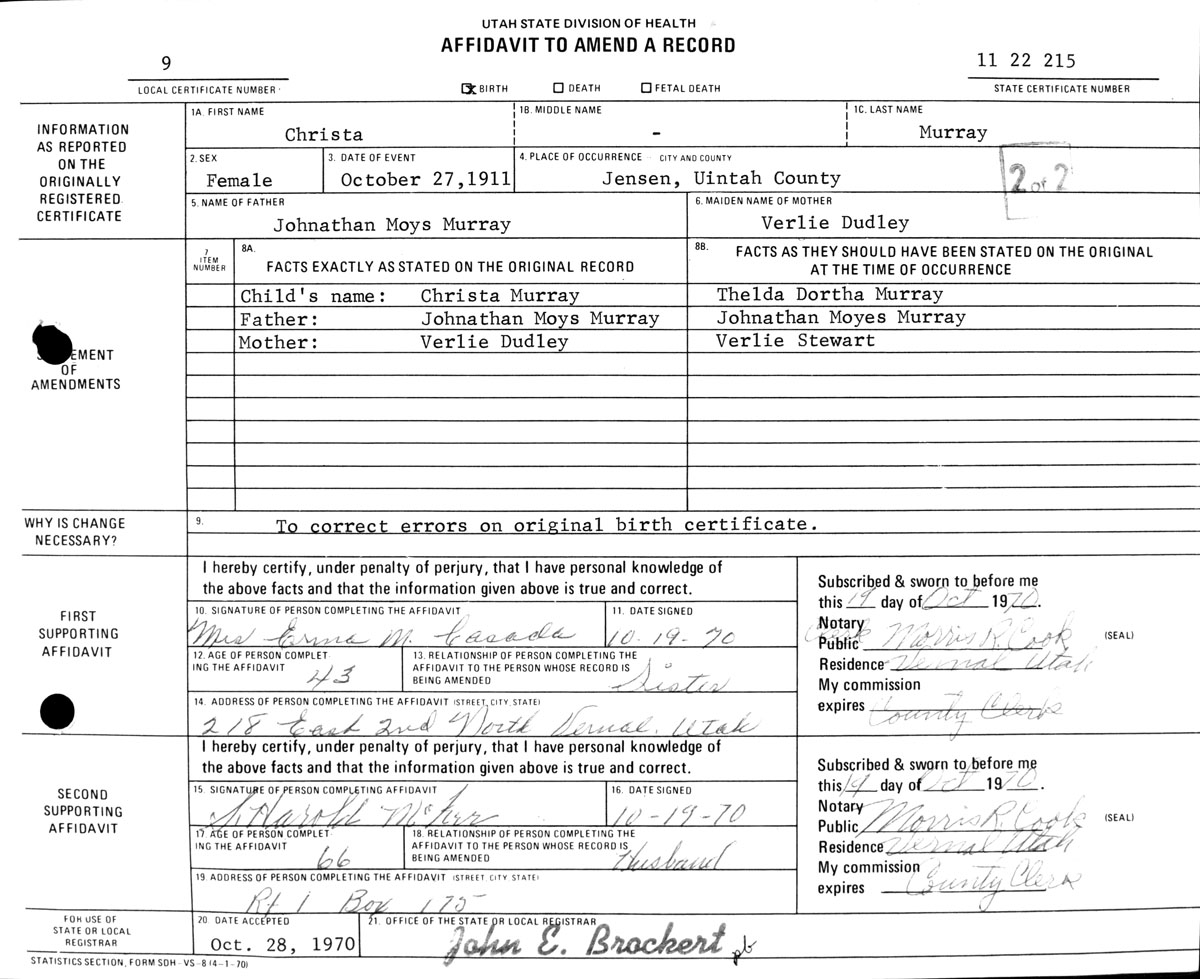 UTAH STATE DIVISION OF HEALTH
AFFIDAVIT TO AMEND A RECORD
9
LOCAL CERTIFICATE NUMBER
BIRTH DEATH FETAL DEATH
11 22 215
STATE CERTIFICATE NUMBER
INFORMATION
AS REPORTED
ON THE
ORIGINALLY
REGISTERED
CERTIFICATE
1A. FIRST NAME
Christa
1B. MIDDLE NAME
-
1C. LAST NAME
Murray
2. SEX
Female
3. DATE OF EVENT
October 27,1911
4. PLACE OF OCCURRENCE CITY AND COUNTY
Jensen, Uintah County
2 of 2
5. NAME OF FATHER
Johnathan Moys Murray
6. MAIDEN NAME OF MOTHER
Verlie Dudley
OF
AMENDMENTS
7
ITEM
NUMBER
8A.
FACTS EXACTLY AS STATED ON THE ORIGINAL RECORD
8B. FACTS AS THEY SHOULD HAVE BEEN STATED ON THE ORIGINAL
AT THE TIME OF OCCURRENCE
Child's name: Christa Murray Thelda Dortha Murray
Father: Johnathan Moys Murray Johnathan Moyes Murray
Mother: Verlie Dudley Verlie Stewart
WHY IS CHANGE
NECESSARY?
9. To correct errors on original birth certificate.
FIRST
SUPPORTING
AFFIDAVIT
I hereby certify, under penalty of perjury, that I have personal knowledge of
the above facts and that the information given above is true and correct.
10. SIGNATURE OF PERSON COMPLETING THE AFFIDAVIT
Mrs Erma M. Casada
11. DATE SIGNED
10-19-70
12. AGE OF PERSON COMPLET-
ING THE AFFIDAVIT
43
13. RELATIONSHIP OF PERSON COMPLETING THE
AFFIDAVIT TO THE PERSON WHOSE RECORD IS
BEING AMENDED
Sister
14. ADDRESS OF PERSON COMPLETING THE AFFIDAVIT (STREET, CITY, STATE)
218 East 2nd North Vernal, Utah
Subscribed & sworn to before me
this 19 day of Oct 1970.
Notary
Clerk Public Morris R. Cook
(SEAL)
Residence Vernal Utah
My commission
expires County Clerk
SECOND
SUPPORTING
AFFIDAVIT
I hereby certify, under penalty of perjury, that I have personal knowledge of
the above facts and that the information given above is true and correct.
15. SIGNATURE OF PERSON COMPLETING AFFIDAVIT
Harold
16. DATE SIGNED
10-19-70
17. AGE OF PERSON COMPLET-
ING THE AFFIDAVIT
66
18. RELATIONSHIP OF PERSON COMPLETING THE
AFFIDAVIT TO THE PERSON WHOSE RECORD IS
BEING AMENDED
Husband
19. ADDRESS OF PERSON COMPLETING THE AFFIDAVIT (STREET, CITY, STATE)
Rt 1 Box 175
Subscribed & sworn to before me
this 19 day of Oct 1970.
Notary
Public Morris R. Cook
(SEAL)
Residence Vernal Utah
My commission
expires County Clerk
FOR USE OF
STATE OR LOCAL
REGISTRAR
20. DATE ACCEPTED
Oct. 28, 1970
21. OFFICE OF THE STATE OR LOCAL REGISTRAR
John E. Brockert pb
STATISTICS SECTION, FORM SDH-VS-8 (4-1-70)